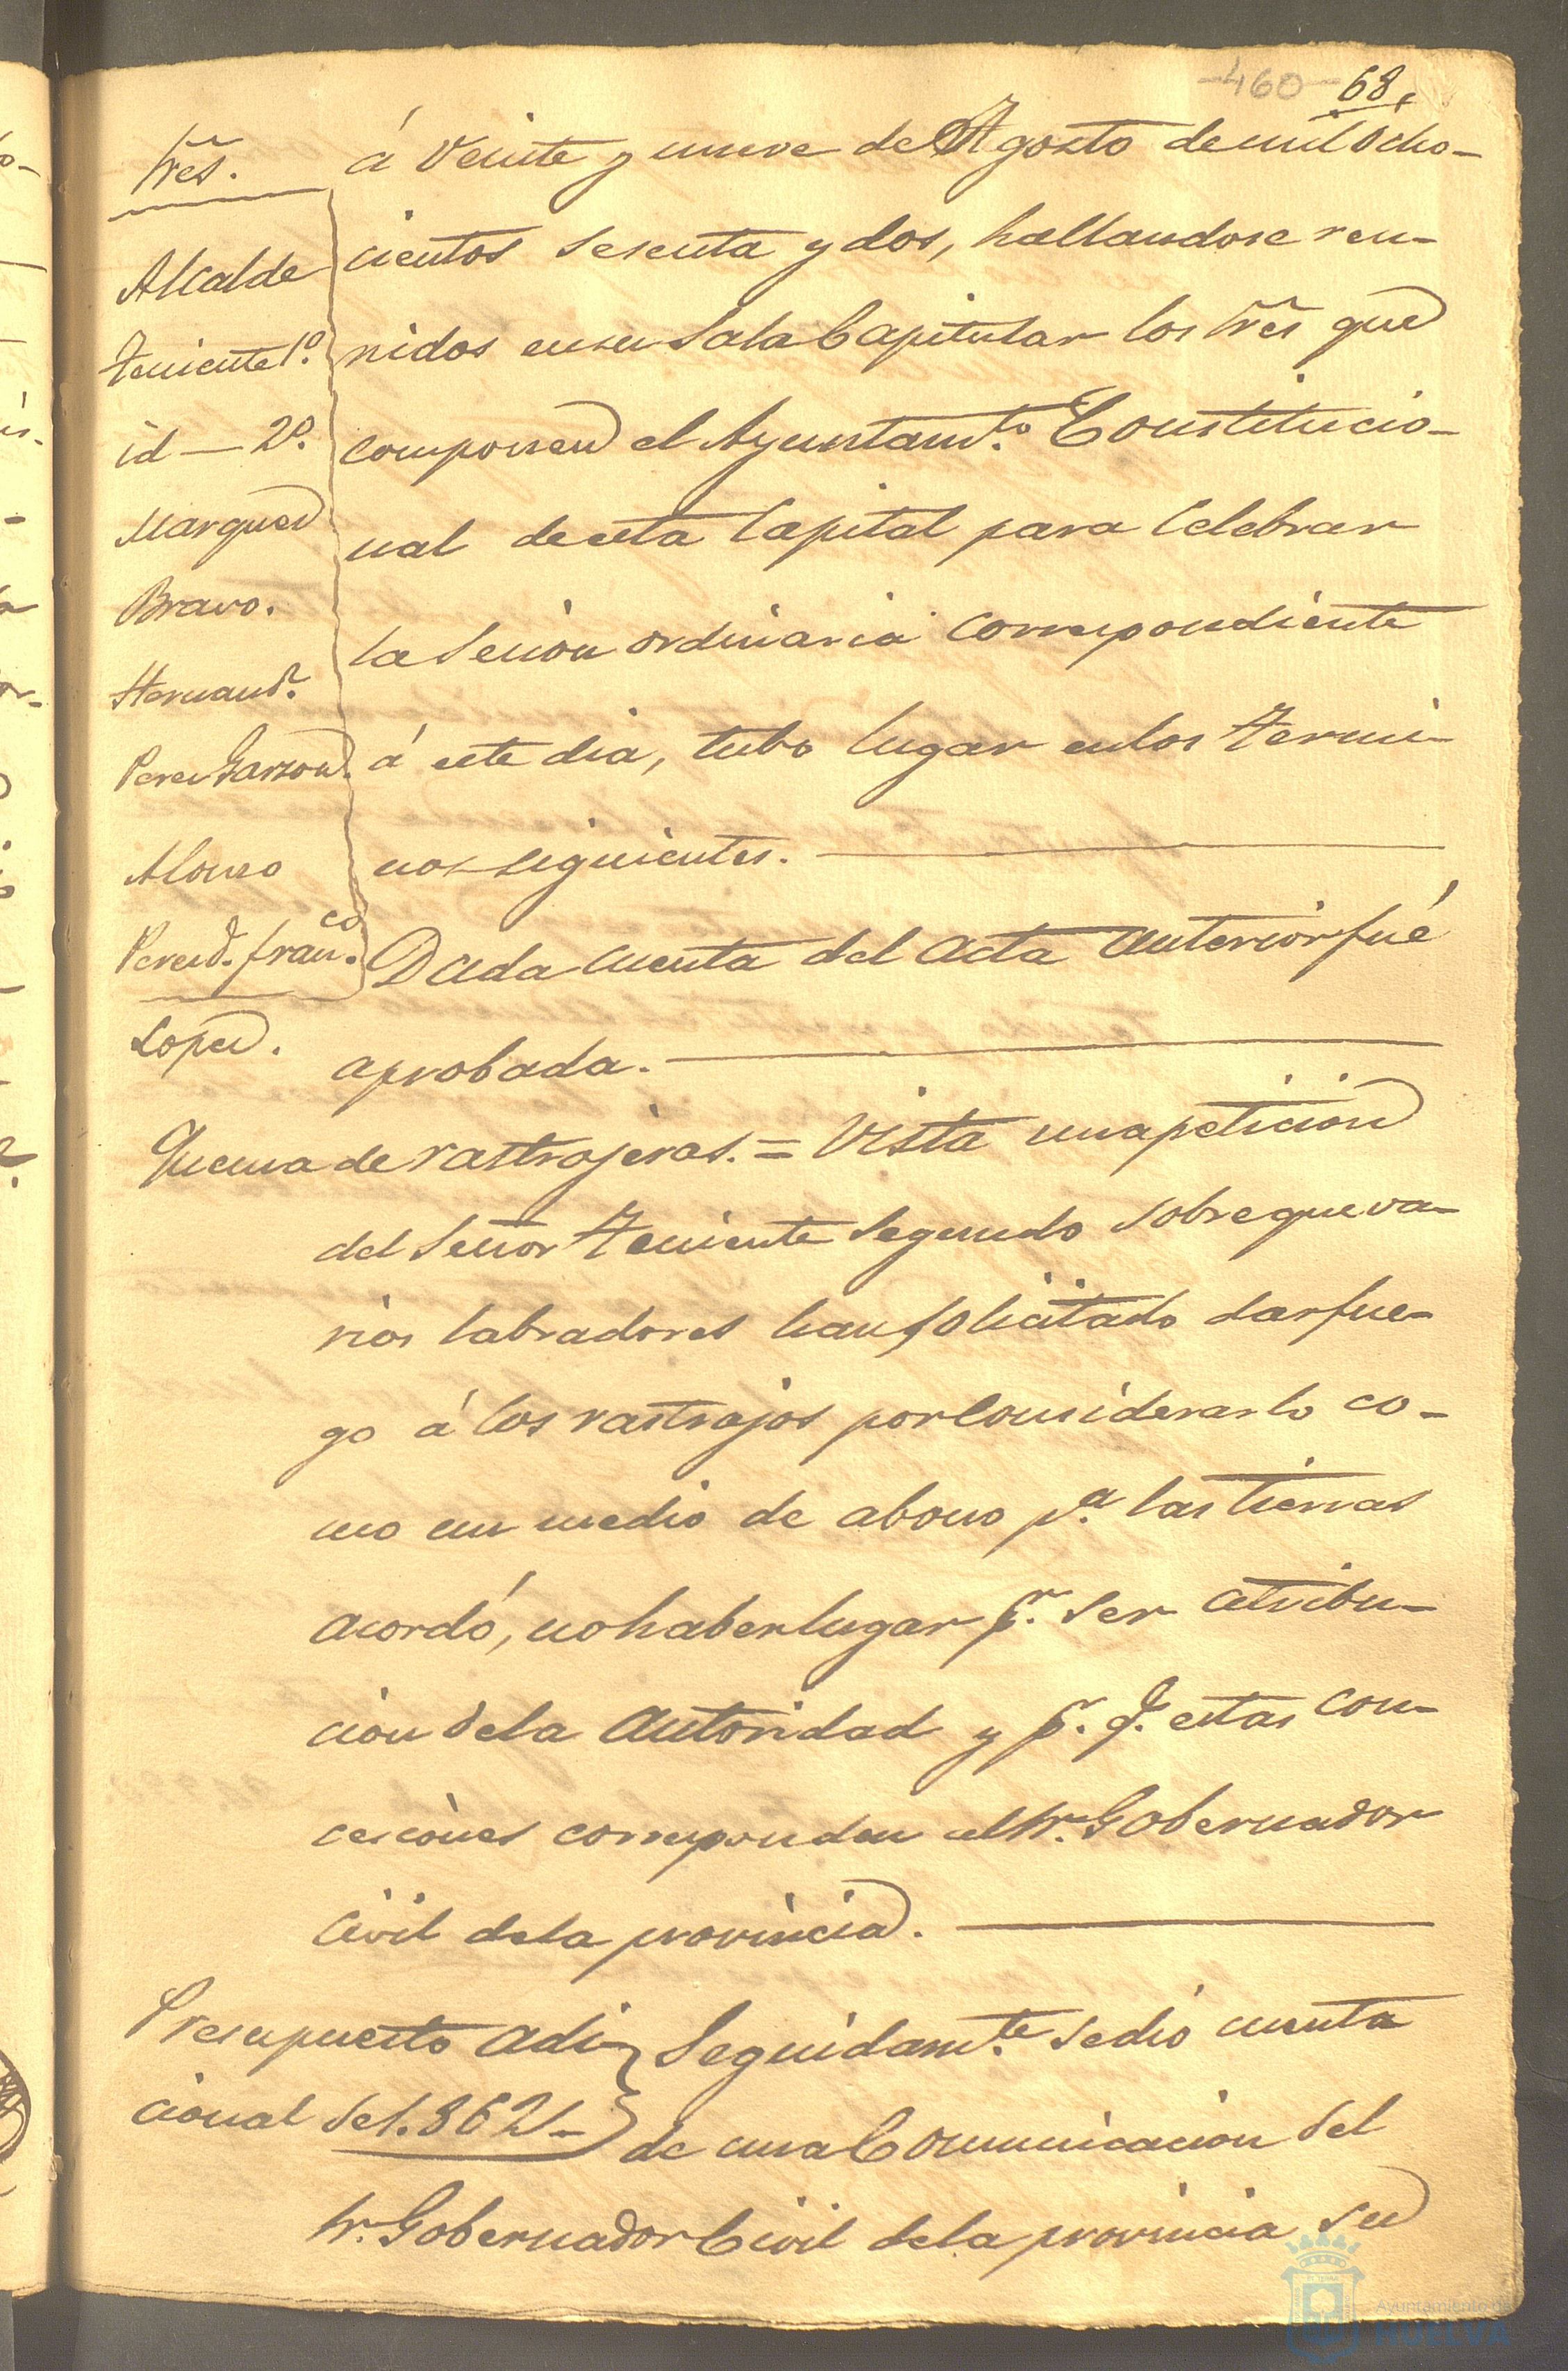 -460- 68,
Sres.
Alcalde
Teniente 1º.
id — 2º.
Marquez
Bravo.
Hernandz.
Perez Garzon.
Alonso
Perez D. Franco.
Lopez.
á veinte y nueve de Agosto de mil ocho-
cientos sesenta y dos, hallandose reu-
nidos en su Sala Capitular los Sres que
componen el Ayuntamto. Constitucio-
nal de esta Capital para celebrar
la sesión ordinaria correspondiente
á este dia, tubo lugar en los termi-
nos siguientes.
Dada cuenta del acta anterior fué
aprobada.
Quema de rastrojeras. = Vista una peticion
del Señor Teniente segundo sobre que va-
rios labradores han solicitado dar fue-
go á los rastrojos por considerarlo co-
mo un medio de abono pa. las tierras
acordó, no haber lugar pr. ser atribu-
cion de la autoridad y pr. q. estas con-
cesiones corresponden al Sr. Gobernador
Civil de la provincia.
Presupuesto adi-
cional de 1.862-
Seguidamte. se dió cuenta
de una Comunicacion del
Sr. Gobernador Civil de la provincia su
Ayuntamiento de
HUELVA